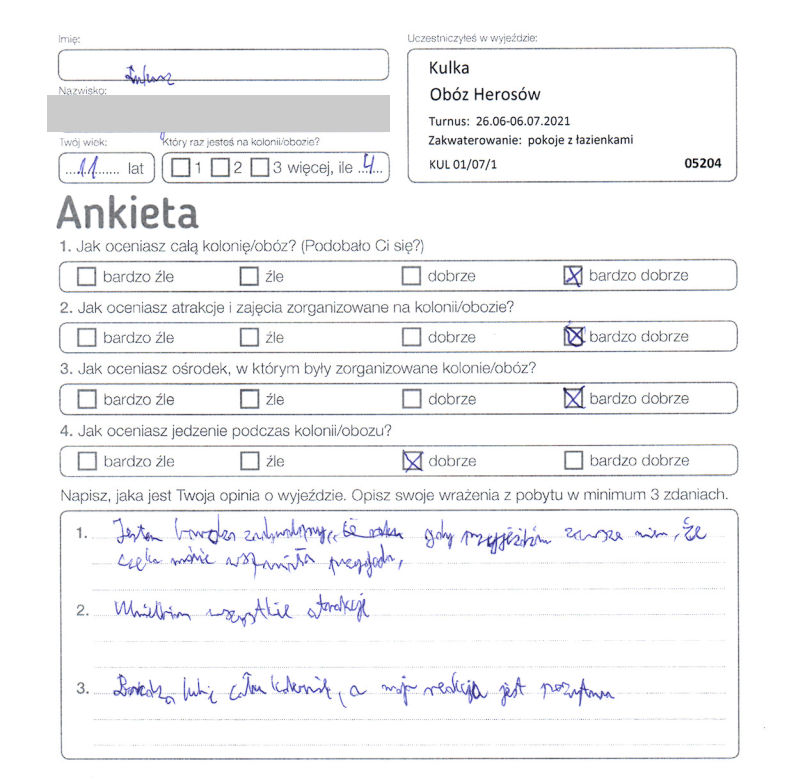 Imię:
Łukasz
Uczestniczyłeś w wyjeździe:
Kulka
Obóz Herosów
Turnus: 26.06-06.07.2021
Zakwaterowanie: pokoje z łazienkami
KUL 01/07/1 05204
Nazwisko:
Twój wiek:
11 lat
Który raz jesteś na kolonii/obozie?
1 2 3 więcej, ile 4
Ankieta
1. Jak oceniasz całą kolonię/obóz? (Podobało Ci się?)
bardzo źle źle dobrze bardzo dobrze
2. Jak oceniasz atrakcje i zajęcia zorganizowane na kolonii/obozie?
bardzo źle źle dobrze bardzo dobrze
3. Jak oceniasz ośrodek, w którym były zorganizowane kolonie/obóz?
bardzo źle źle dobrze bardzo dobrze
4. Jak oceniasz jedzenie podczas kolonii/obozu?
bardzo źle źle dobrze bardzo dobrze
Napisz, jaka jest Twoja opinia o wyjeździe. Opisz swoje wrażenia z pobytu w minimum 3 zdaniach.
1. Jestem bardzo zadowolony, gdy przyjeżdżam zawsze wiem, że
czeka mnie wspaniała przygoda,
2. Uwielbiam wszystkie atrakcje
3. Bardzo lubię całą kolonię, a moja reakcja jest pozytywna